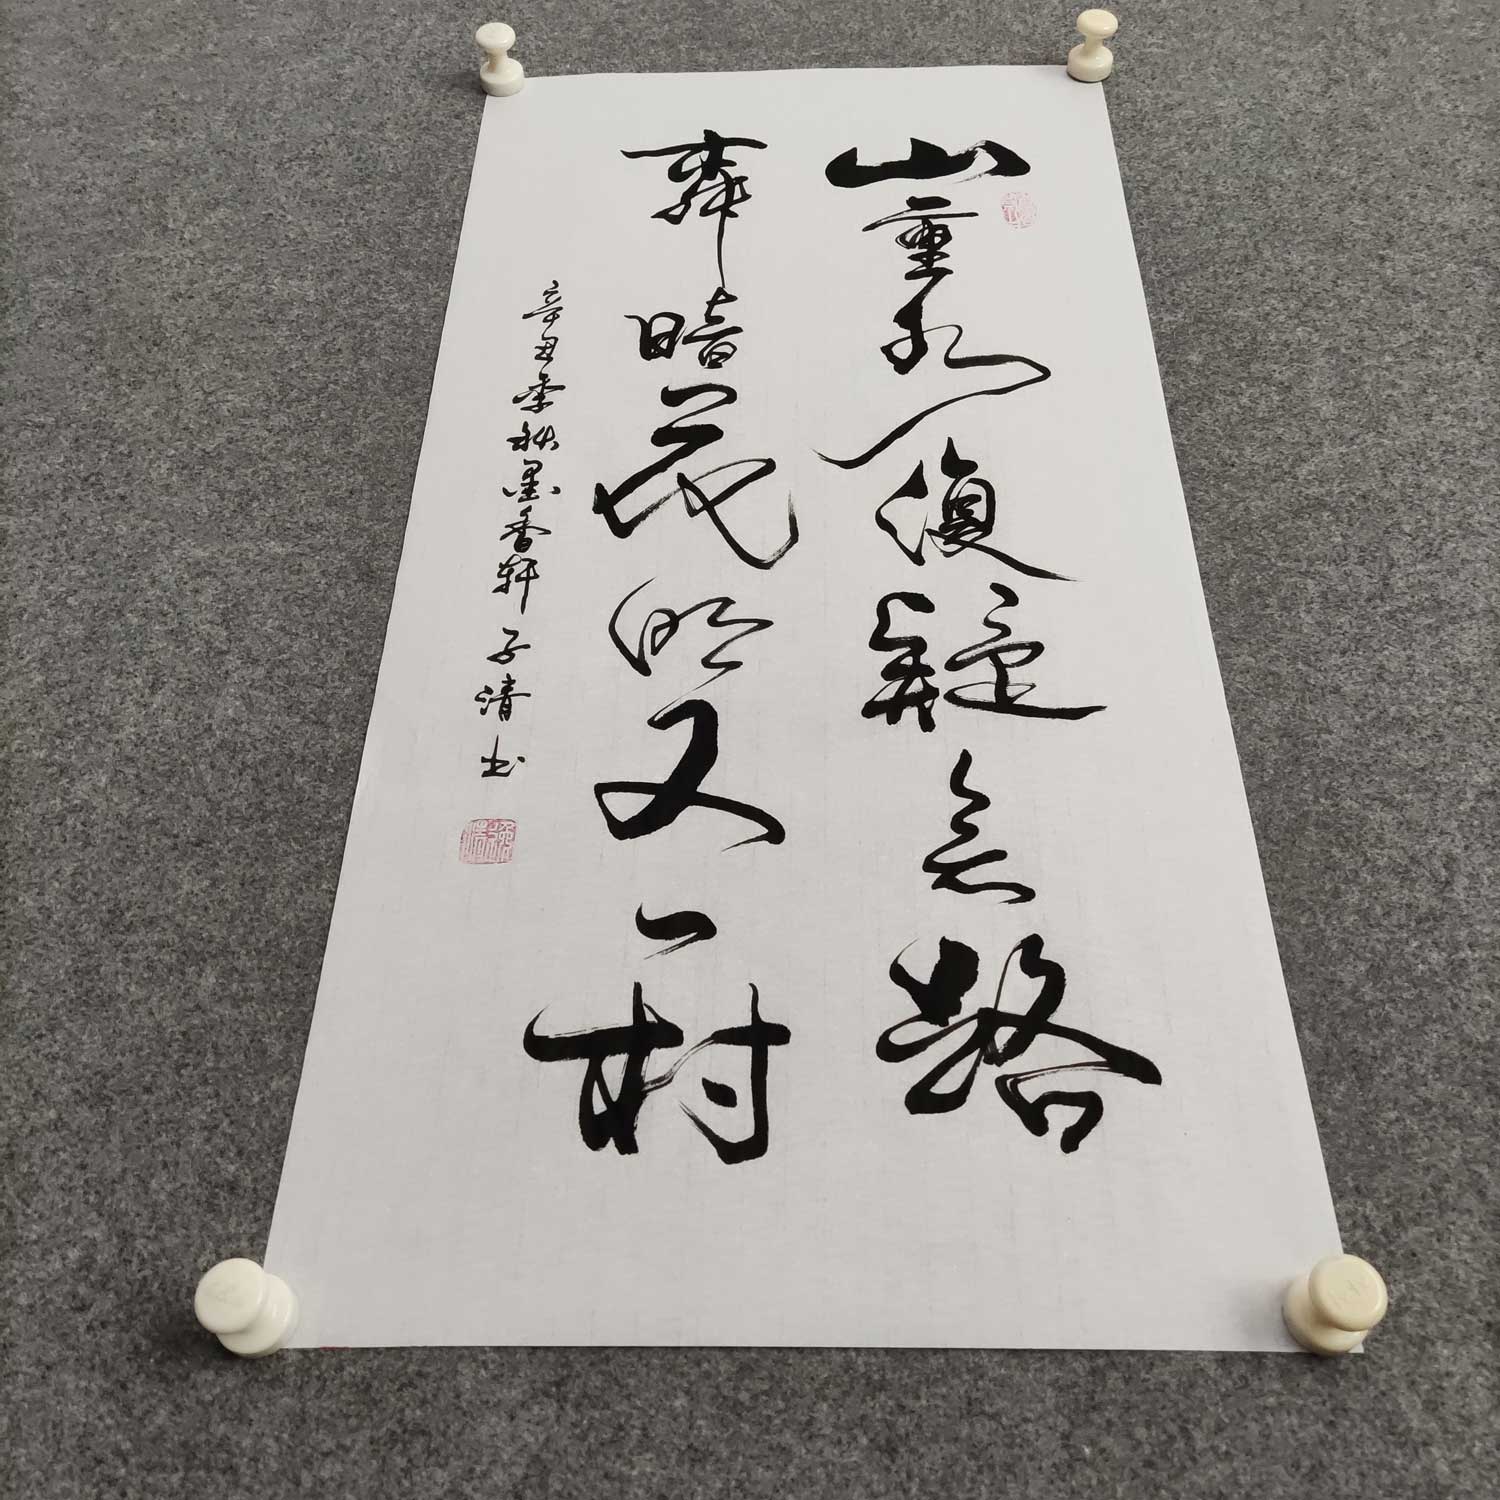 山重水復疑無路
柳暗花明又一村
辛丑季秋墨香轩子清书